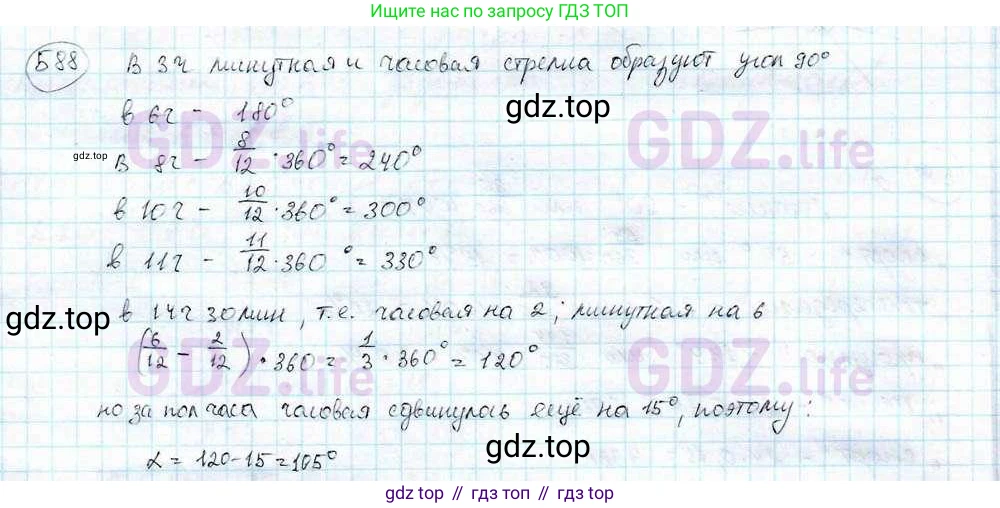 Ищите нас по запросу ГДЗ ТОП
588 В 3ч минутная и часовая стрелка образуют угол 90°
в 6ч - 180°
gdz.top
GDZ.life
GDZ.life
gdz.top
В 8ч - 8/12 · 360° = 240°
в 10ч - 10/12 · 360° = 300°
в 11ч - 11/12 · 360° = 330°
в 14ч 30мин, т.е. часовая на 2; минутная на 6
gdz.top
(6/12 - 2/12) · 360 = 1/3 · 360° = 120°
GDZ.life
GDZ.life
но за пол часа часовая сдвинулась ещё на 15°, поэтому:
gdz.top
α = 120-15=105°
gdz top // гдз топ // gdz.top